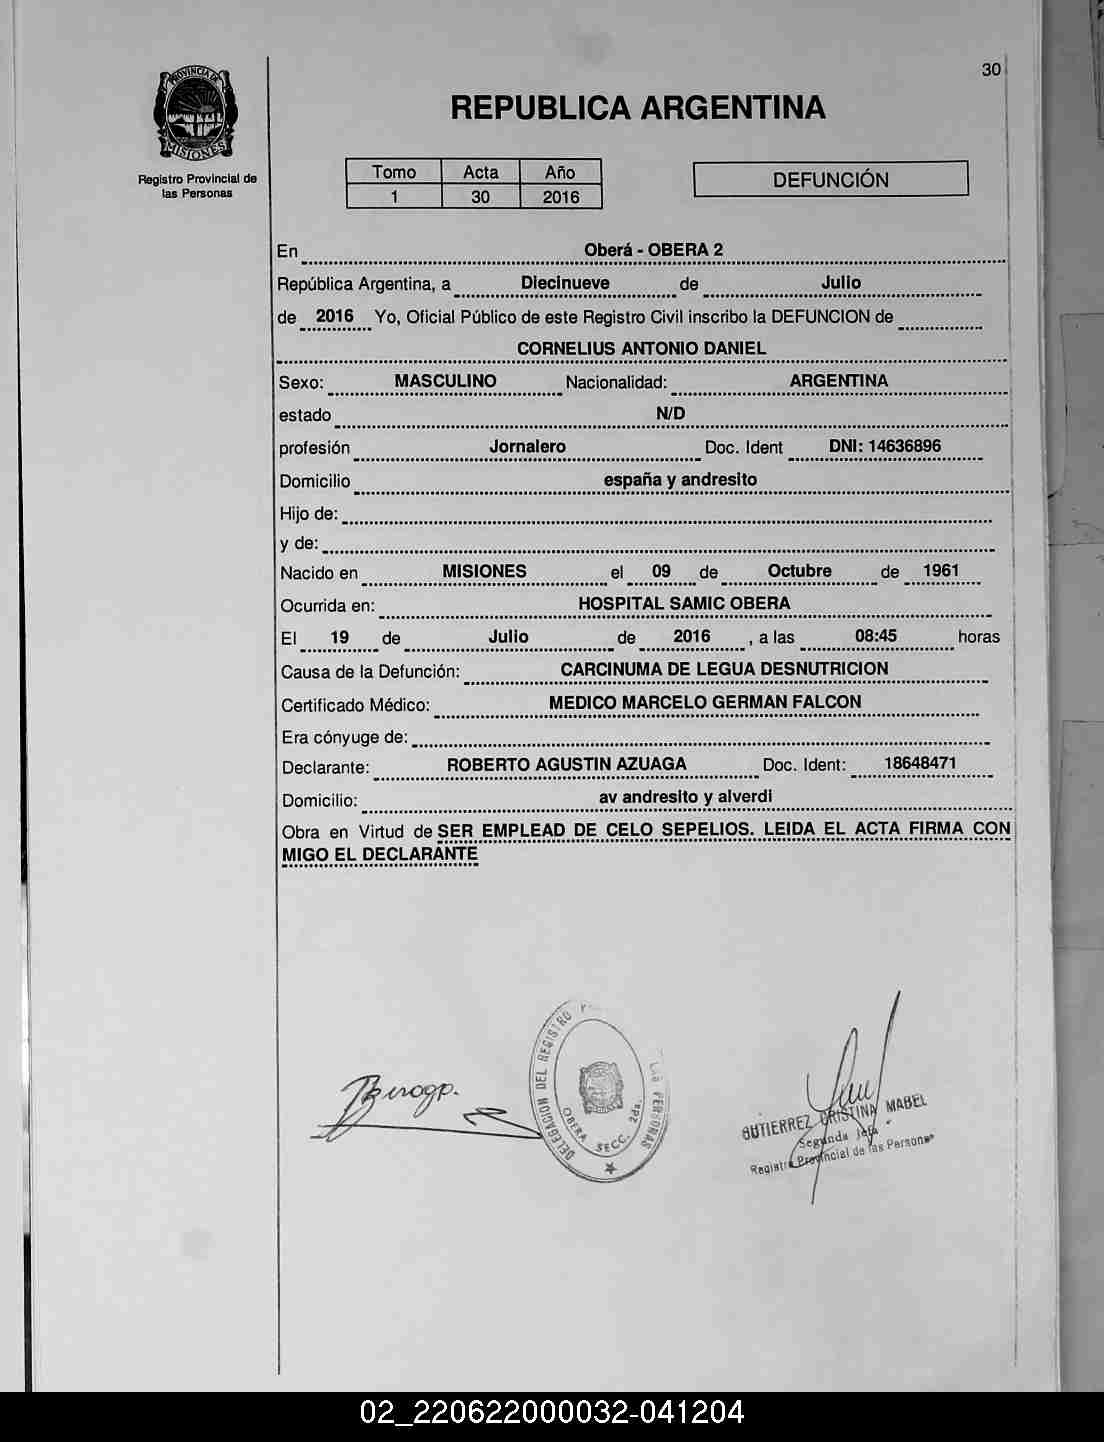 30
PROVINCIA DE
MISIONES
Registro Provincial de
las Personas
REPUBLICA ARGENTINA
Tomo Acta Año
1 30 2016
DEFUNCIÓN
En Oberá - OBERA 2
República Argentina, a Diecinueve de Julio
de 2016 Yo, Oficial Público de este Registro Civil inscribo la DEFUNCION de
CORNELIUS ANTONIO DANIEL
Sexo: MASCULINO Nacionalidad: ARGENTINA
estado N/D
profesión Jornalero Doc. Ident DNI: 14636896
Domicilio españa y andresito
Hijo de:
y de:
Nacido en MISIONES el 09 de Octubre de 1961
Ocurrida en: HOSPITAL SAMIC OBERA
El 19 de Julio de 2016 , a las 08:45 horas
Causa de la Defunción: CARCINUMA DE LEGUA DESNUTRICION
Certificado Médico: MEDICO MARCELO GERMAN FALCON
Era cónyuge de:
Declarante: ROBERTO AGUSTIN AZUAGA Doc. Ident: 18648471
Domicilio: av andresito y alverdi
Obra en Virtud de SER EMPLEAD DE CELO SEPELIOS. LEIDA EL ACTA FIRMA CON
MIGO EL DECLARANTE
DELEGACION DEL REGISTRO LAS PERSONAS
OBERA SECC. 2da.
GUTIERREZ CRISTINA MABEL
Segunda Jefa
Registro Provincial de las Personas
02_220622000032-041204